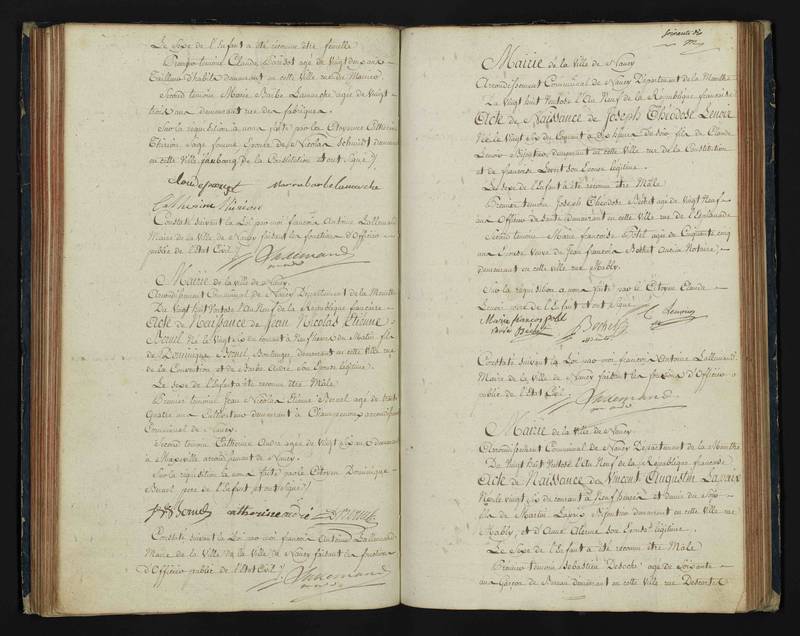 Le Sexe de l'Enfant a été reconnu être femelle
Premier témoin Claude agé de Vingt ans
Tailleur d'habits demeurant en cette Ville rue
Second témoin Marie Barbe Lamarche agée de Vingt
trois ans demeurant rue des fabriques.
Sur la requisition à nous faite par la Citoyenne Catherine
Thirion Sage femme Epouse de Nicolas Schmidt demeurant
en cette Ville faubourg de la Constitution et ont Signé
Marie barbe lamarche
Catherine
Constaté suivant la Loi par moi françois Antoine Lallemand
Maire de la Ville de Nancy faisant les fonctions d'Officier
public de l'Etat Civil
Lallemand
Mairie de la Ville de Nancy.
Arrondissement Communal de Nancy Département de la Meurthe
Du Vingt huit Ventose l'An Neuf de la République française
Acte de Naissance de Jean Nicolas Etienne
né le Vingt du courant à Neuf heures du Matin fils
de Dominique Boulanger, demeurant en cette Ville rue
de la Convention et de Barbe André son Epouse légitime.
Le Sexe de l'Enfant a été reconnu être Mâle
Premier témoin Jean Nicolas Etienne agé de trente
quatre ans Cultivateur demeurant à Champenoux arrondissement
Communal de Nancy.
Second témoin Catherine André agée de Vingt ans demeurant
à Maxeville arrondissement de Nancy.
Sur la requisition à nous faite par le Citoyen Dominique
père de l'Enfant et ont Signé
catherine andré
Constaté suivant la Loi par moi françois Antoine Lallemand
Maire de la Ville de la Ville de Nancy faisant les fonctions
d'Officier public de l'Etat Civil
Lallemand
soixante
Mairie de la Ville de Nancy
Arrondissement Communal de Nancy Département de la Meurthe
Du Vingt huit Ventose l'An Neuf de la République française
Acte de Naissance de Joseph Théodose Lenoir
Né le Vingt du Courant à heures du Soir fils de Claude
Lenoir demeurant en cette Ville rue de la Constitution
et de françoise son Epouse légitime.
Le Sexe de l'Enfant a été reconnu être Mâle
Premier témoin Joseph Théodose agé de Vingt Neuf
ans Officier de Santé demeurant en cette Ville rue de l'Esplanade
Second témoin Marie françoise Potel agée de Cinquante cinq
ans Veuve de Jean françois ancien Notaire
demeurant en cette Ville rue Mably.
Sur la requisition à nous faite par le Citoyen Claude
Lenoir père de l'Enfant et ont Signé
Marie françoise potel
C Lenoir
Constaté suivant la Loi par moi françois Antoine Lallemand
Maire de la Ville de Nancy faisant les fonctions d'Officier
public de l'Etat Civil
Lallemand
Mairie de la Ville de Nancy.
Arrondissement Communal de Nancy Département de la Meurthe
Du Vingt huit Ventose l'An Neuf de la République française
Acte de Naissance de Vincent Augustin Laprix
Né le vingt du courant à Neuf heures et demie du Soir
fils de Martin Laprix demeurant en cette Ville rue
Mably, et d'Anne son Epouse légitime.
Le Sexe de l'Enfant a été reconnu être Mâle
Premier témoin Sébastien agé de Soixante
ans Garçon de Bureau demeurant en cette Ville rue